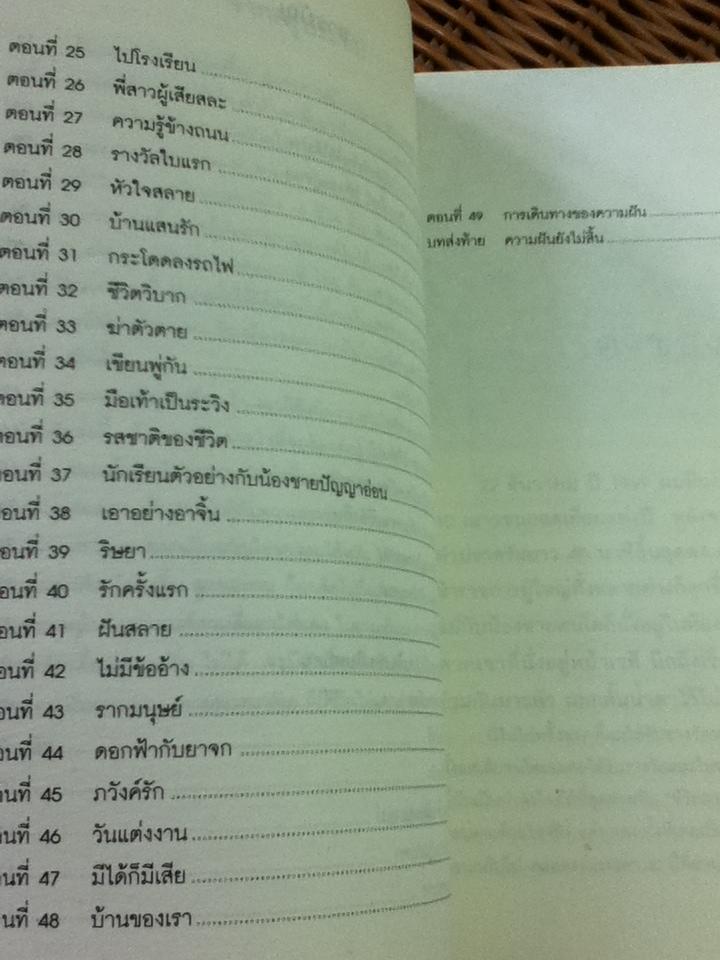 ตอนที่ 25 ไปโรงเรียน
ตอนที่ 26 พี่สาวผู้เสียสละ
ตอนที่ 27 ความรู้ข้างถนน
ตอนที่ 28 รางวัลใบแรก
ตอนที่ 29 หัวใจสลาย
ตอนที่ 30 บ้านแสนรัก
ตอนที่ 31 กระโดดลงรถไฟ
ตอนที่ 32 ชีวิตวิบาก
ตอนที่ 33 ฆ่าตัวตาย
ตอนที่ 34 เขียนพู่กัน
ตอนที่ 35 มือเท้าเป็นระวิง
ตอนที่ 36 รสชาติของชีวิต
ตอนที่ 37 นักเรียนตัวอย่างกับน้องชายปัญญาอ่อน
ตอนที่ 38 เอาอย่างอาจิ้น
ตอนที่ 39 ริษยา
ตอนที่ 40 รักครั้งแรก
ตอนที่ 41 ฝันสลาย
ตอนที่ 42 ไม่มีข้ออ้าง
ตอนที่ 43 รากมนุษย์
ตอนที่ 44 ดอกฟ้ากับยาจก
ตอนที่ 45 ภวังค์รัก
ตอนที่ 46 วันแต่งงาน
ตอนที่ 47 มีได้ก็มีเสีย
ตอนที่ 48 บ้านของเรา
ตอนที่ 49 การเดินทางของความฝัน
บทส่งท้าย ความฝันยังไม่สิ้น